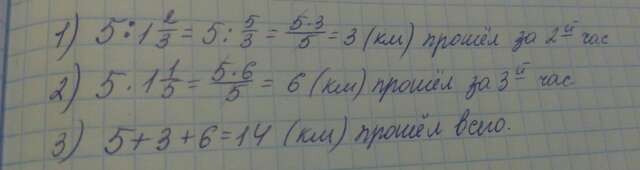 1) 5 : 1 2/3 = 5 : 5/3 = 5·3/5 = 3 (км) прошёл за 2й час
2) 5 · 1 1/5 = 5·6/5 = 6 (км) прошёл за 3й час
3) 5+3+6=14 (км) прошёл всего.